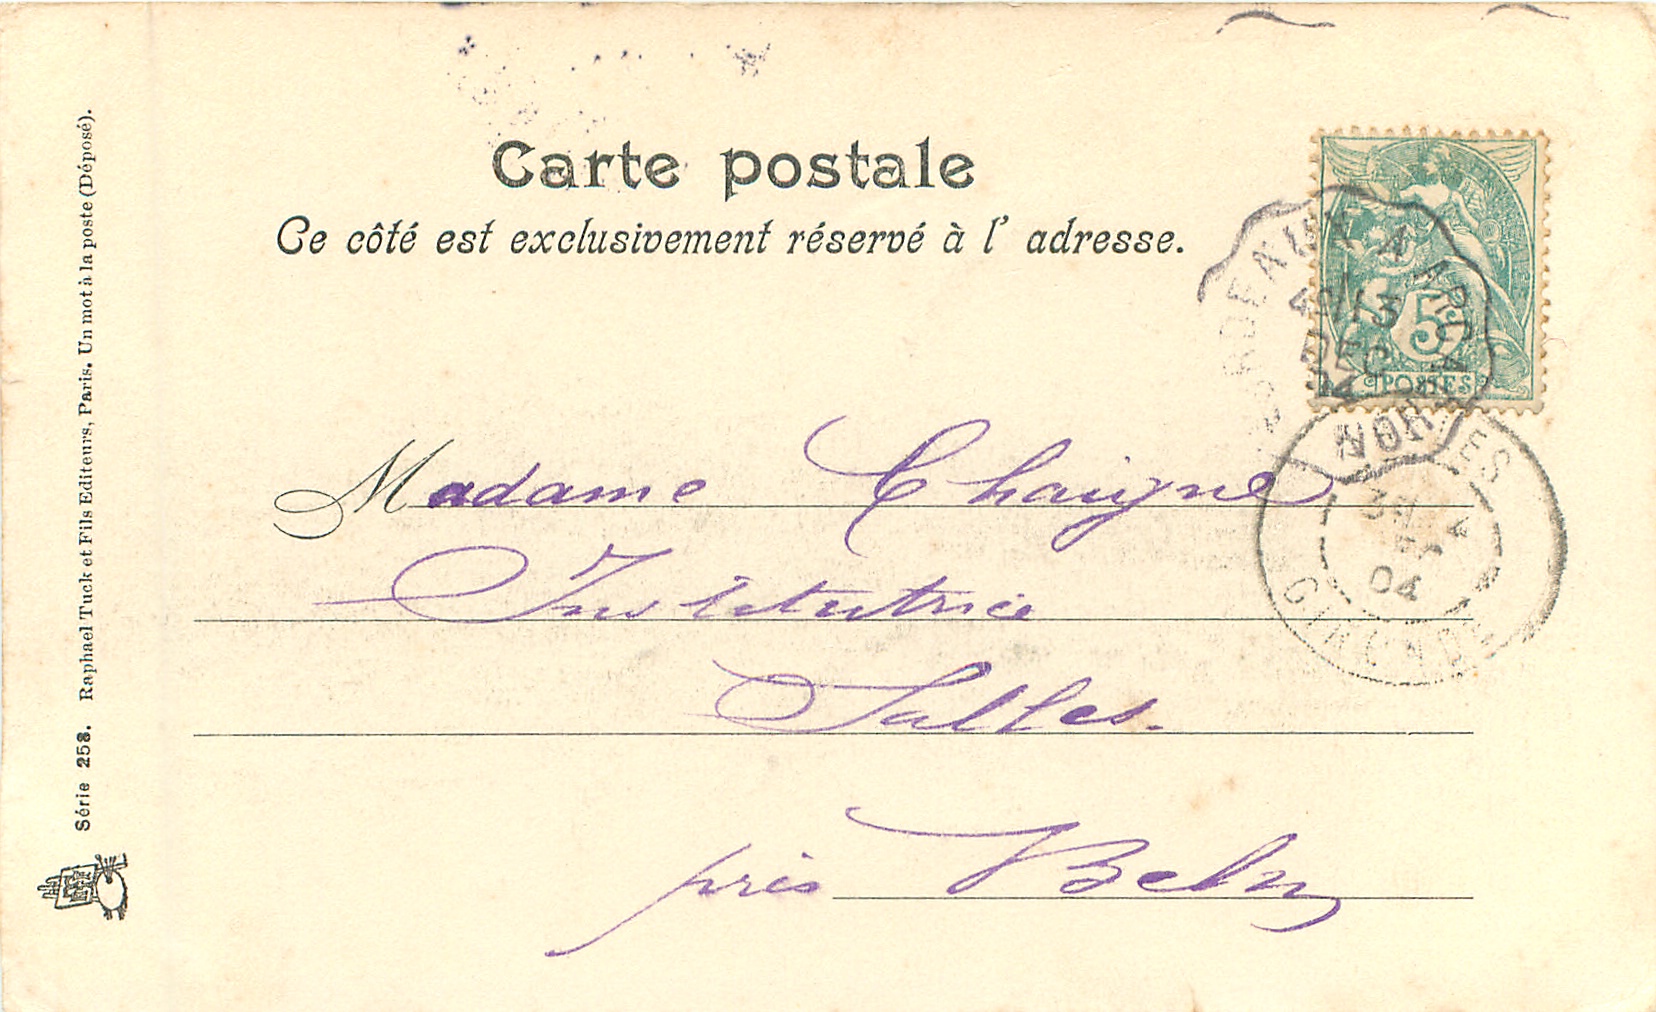 Carte postale
Ce côté est exclusivement réservé à l' adresse.
5
POSTES
BORDEAUX A ARCA
NORD
13
DEC
04
GIRONDE
Madame Chaigne
Institutrice
Salles.
près Belin
Série 258. Raphael Tuck et Fils Editeurs, Paris. Un mot à la poste (Déposé).